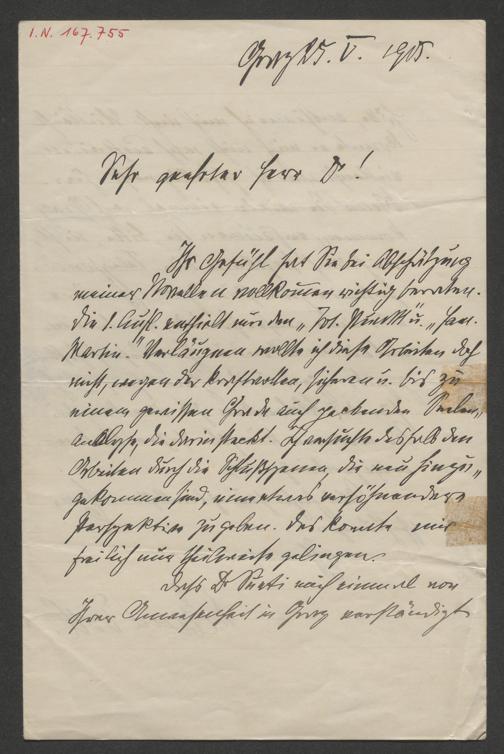 I.N. 167.755
Graz 25. V. 1905.
Sehr geehrter Herr Dr!
Ihr Gefühl hat Sie bei Abschätzung
meiner Novellen vollkommen richtig beraten.
Die 1. Aufl. enthielt nur den „Joh. " u. „Han.
Martin." Verläugnen wollte ich diese Arbeiten doch
nicht, wegen der kraftvollen, sicheren u. bis zu
einem gewissen Grade auch packenden Seelen„
analyse, die darin steckt. Ich versuchte deshalb den
Arbeiten durch die Schlußszenen, die neu hinzu„
gekommen sind, eine etwas versöhnendere
Perspektive zu geben. Das konnte mir
freilich nur theilweise gelingen.
Dass Dr noch einmal von
Ihrer Anwesenheit in Graz verständigt